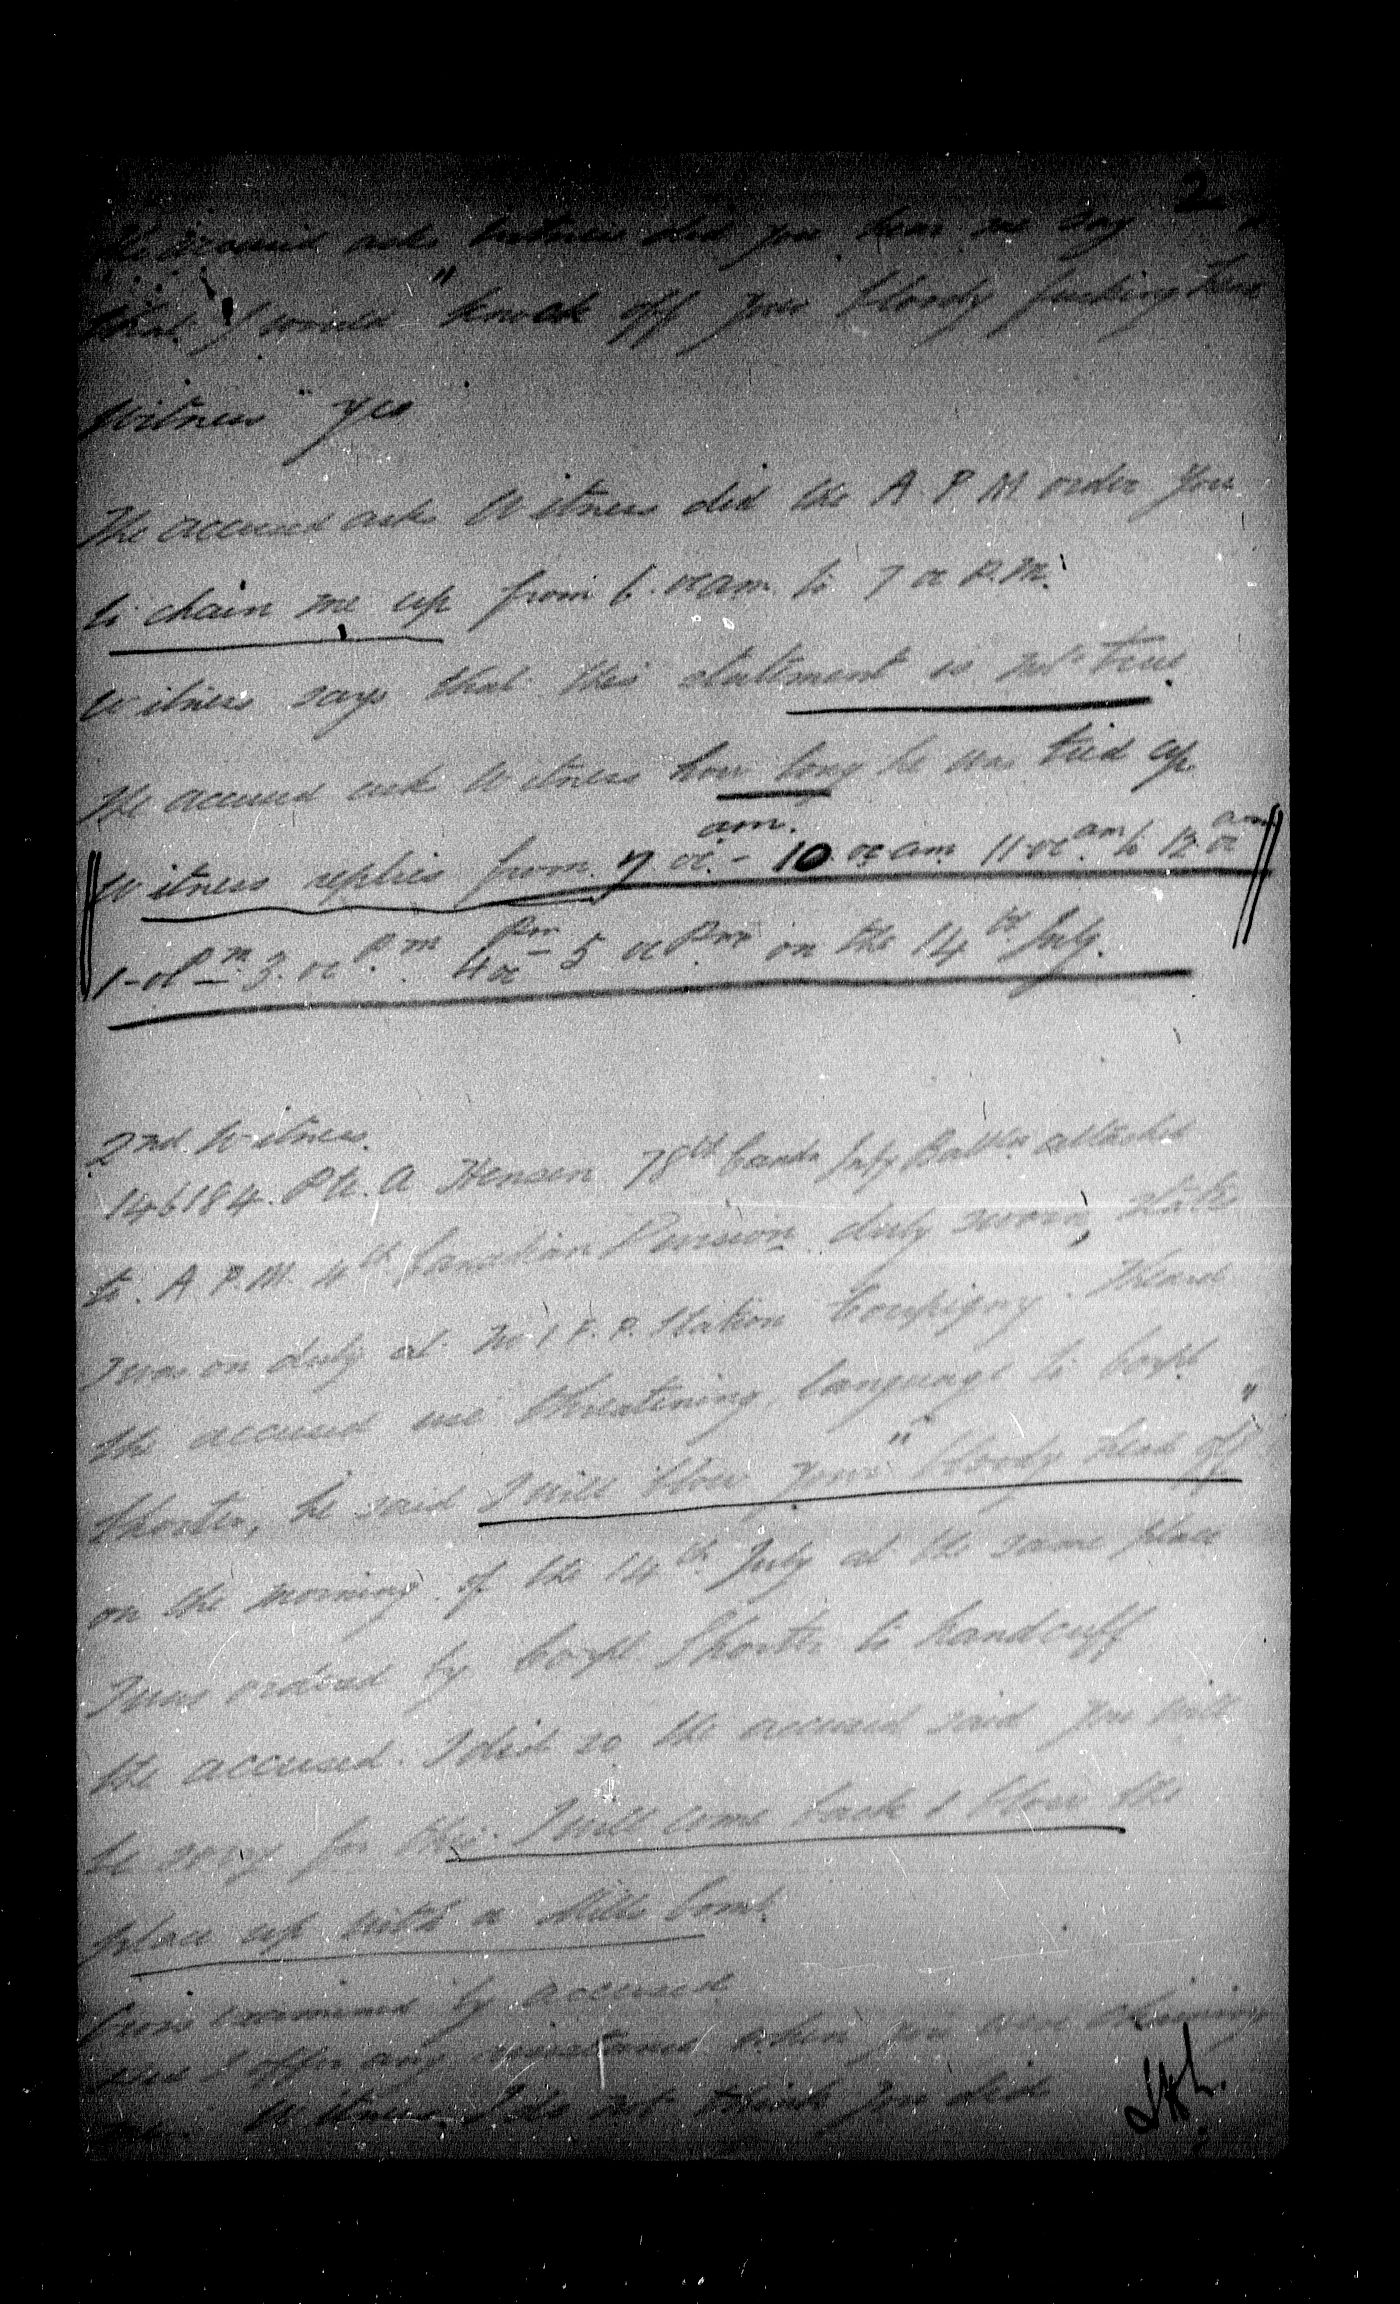 2
The accused asks witness did you hear me say
that I would "knock off your bloody fucking head
Witness "yes
The accused asks Witness did the A.P.M order you
to chain me up from 6. oc am. to 7 oc P.M.
Witness says that this statement is not true
The accused asks Witness how long he was tied up
Witness replies from 7 oc am. - 10 oc am 11 oc am to 12 oc am
1 - oc Pm - 3. oc P.m 4 oc Pm - 5 oc Pm on the 14th July.
2nd Witness.
146184. Pte. A Hensen 78th Canda Infy Battn attached
to. A.P.M. 4th Canadian Division duly sworn, states
I was on duty at No 1 P.P. Station Coupigny. I heard
the accused use threatening language to Corpl
Shorter, he said I will blow your "bloody head off"
on the morning of the 14th July at the same place
I was ordered by Corpl Shorter to handcuff
the accused. I did so the accused said you will
be sorry for this. I will come back & blow the
place up with a Mills bomb.
Cross examined by accused
Did I offer any resistance when you were chaining
me. Witness I do not think you did